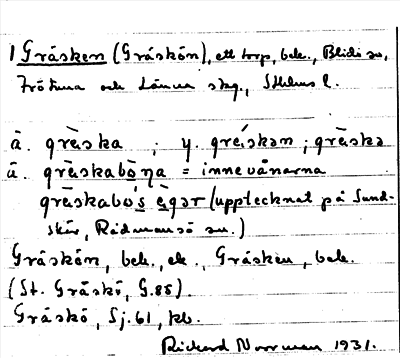 1 Gråsken (Gråskön), ett torp, bek., Blidö sn,
Frötuna och Länna skg., Sthlms l.
ä. grèska ; y. greískən ; grèskə
ä. grèskabòna = innevånarna
grèskabo's ègər (upptecknat på Sund-
skär, Rådmansö sn.)
Gråskön, bek., ek., Gråsken, bek.
(St. Gråskö, G.85).
Gråskö, Sj. 61, kb.
Rickard Norrman 1931.